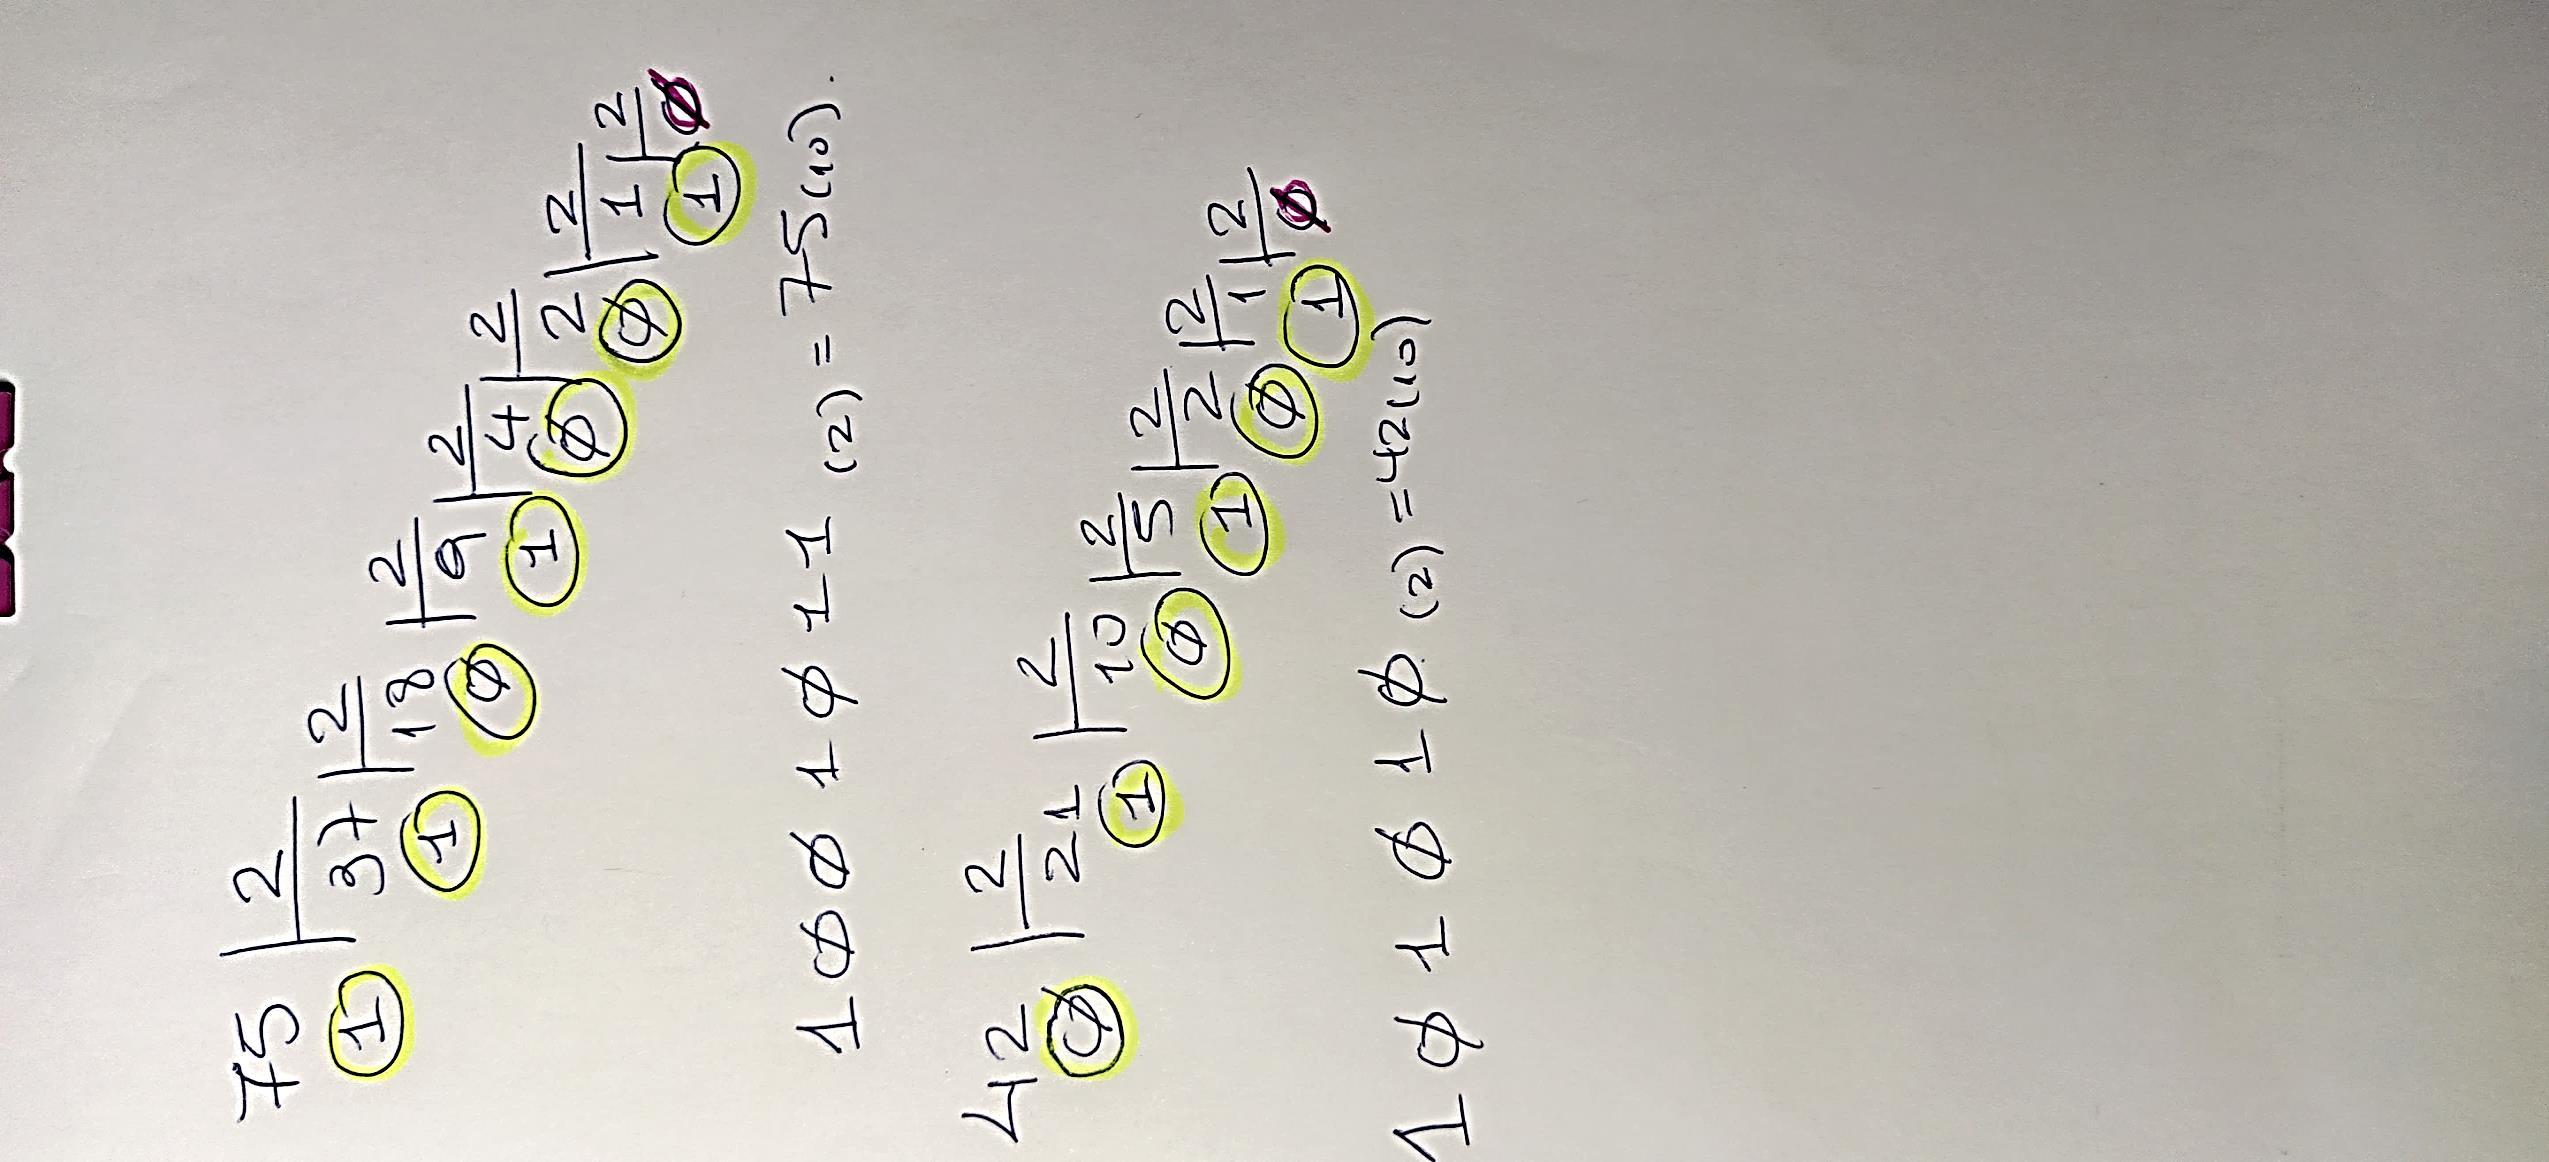 75 | 2
① 37 | 2
① 18 | 2
⓪ 9 | 2
① 4 | 2
⓪ 2 | 2
⓪ 1 | 2
① 0
1 0 0 1 0 1 1 (2) = 75(10).
42 | 2
⓪ 21 | 2
① 10 | 2
⓪ 5 | 2
① 2 | 2
⓪ 1 | 2
① 0
1 0 1 0 1 0 (2) = 42(10)